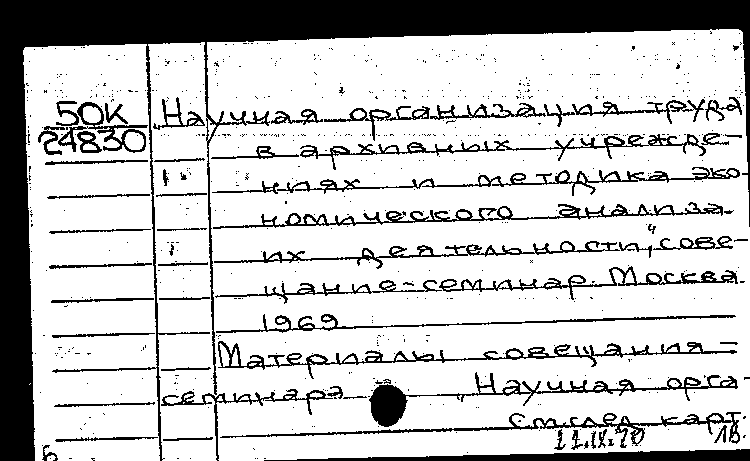 50К
24830
„Научная организация труда
в архивных учрежде-
ниях и методика эко-
номического анализа
их деятельности“, сове-
щание-семинар. Москва.
1969.
Материалы совещания-
семинара „Научная орга-
См. след. карт.
11.IX.70 1В.
Б